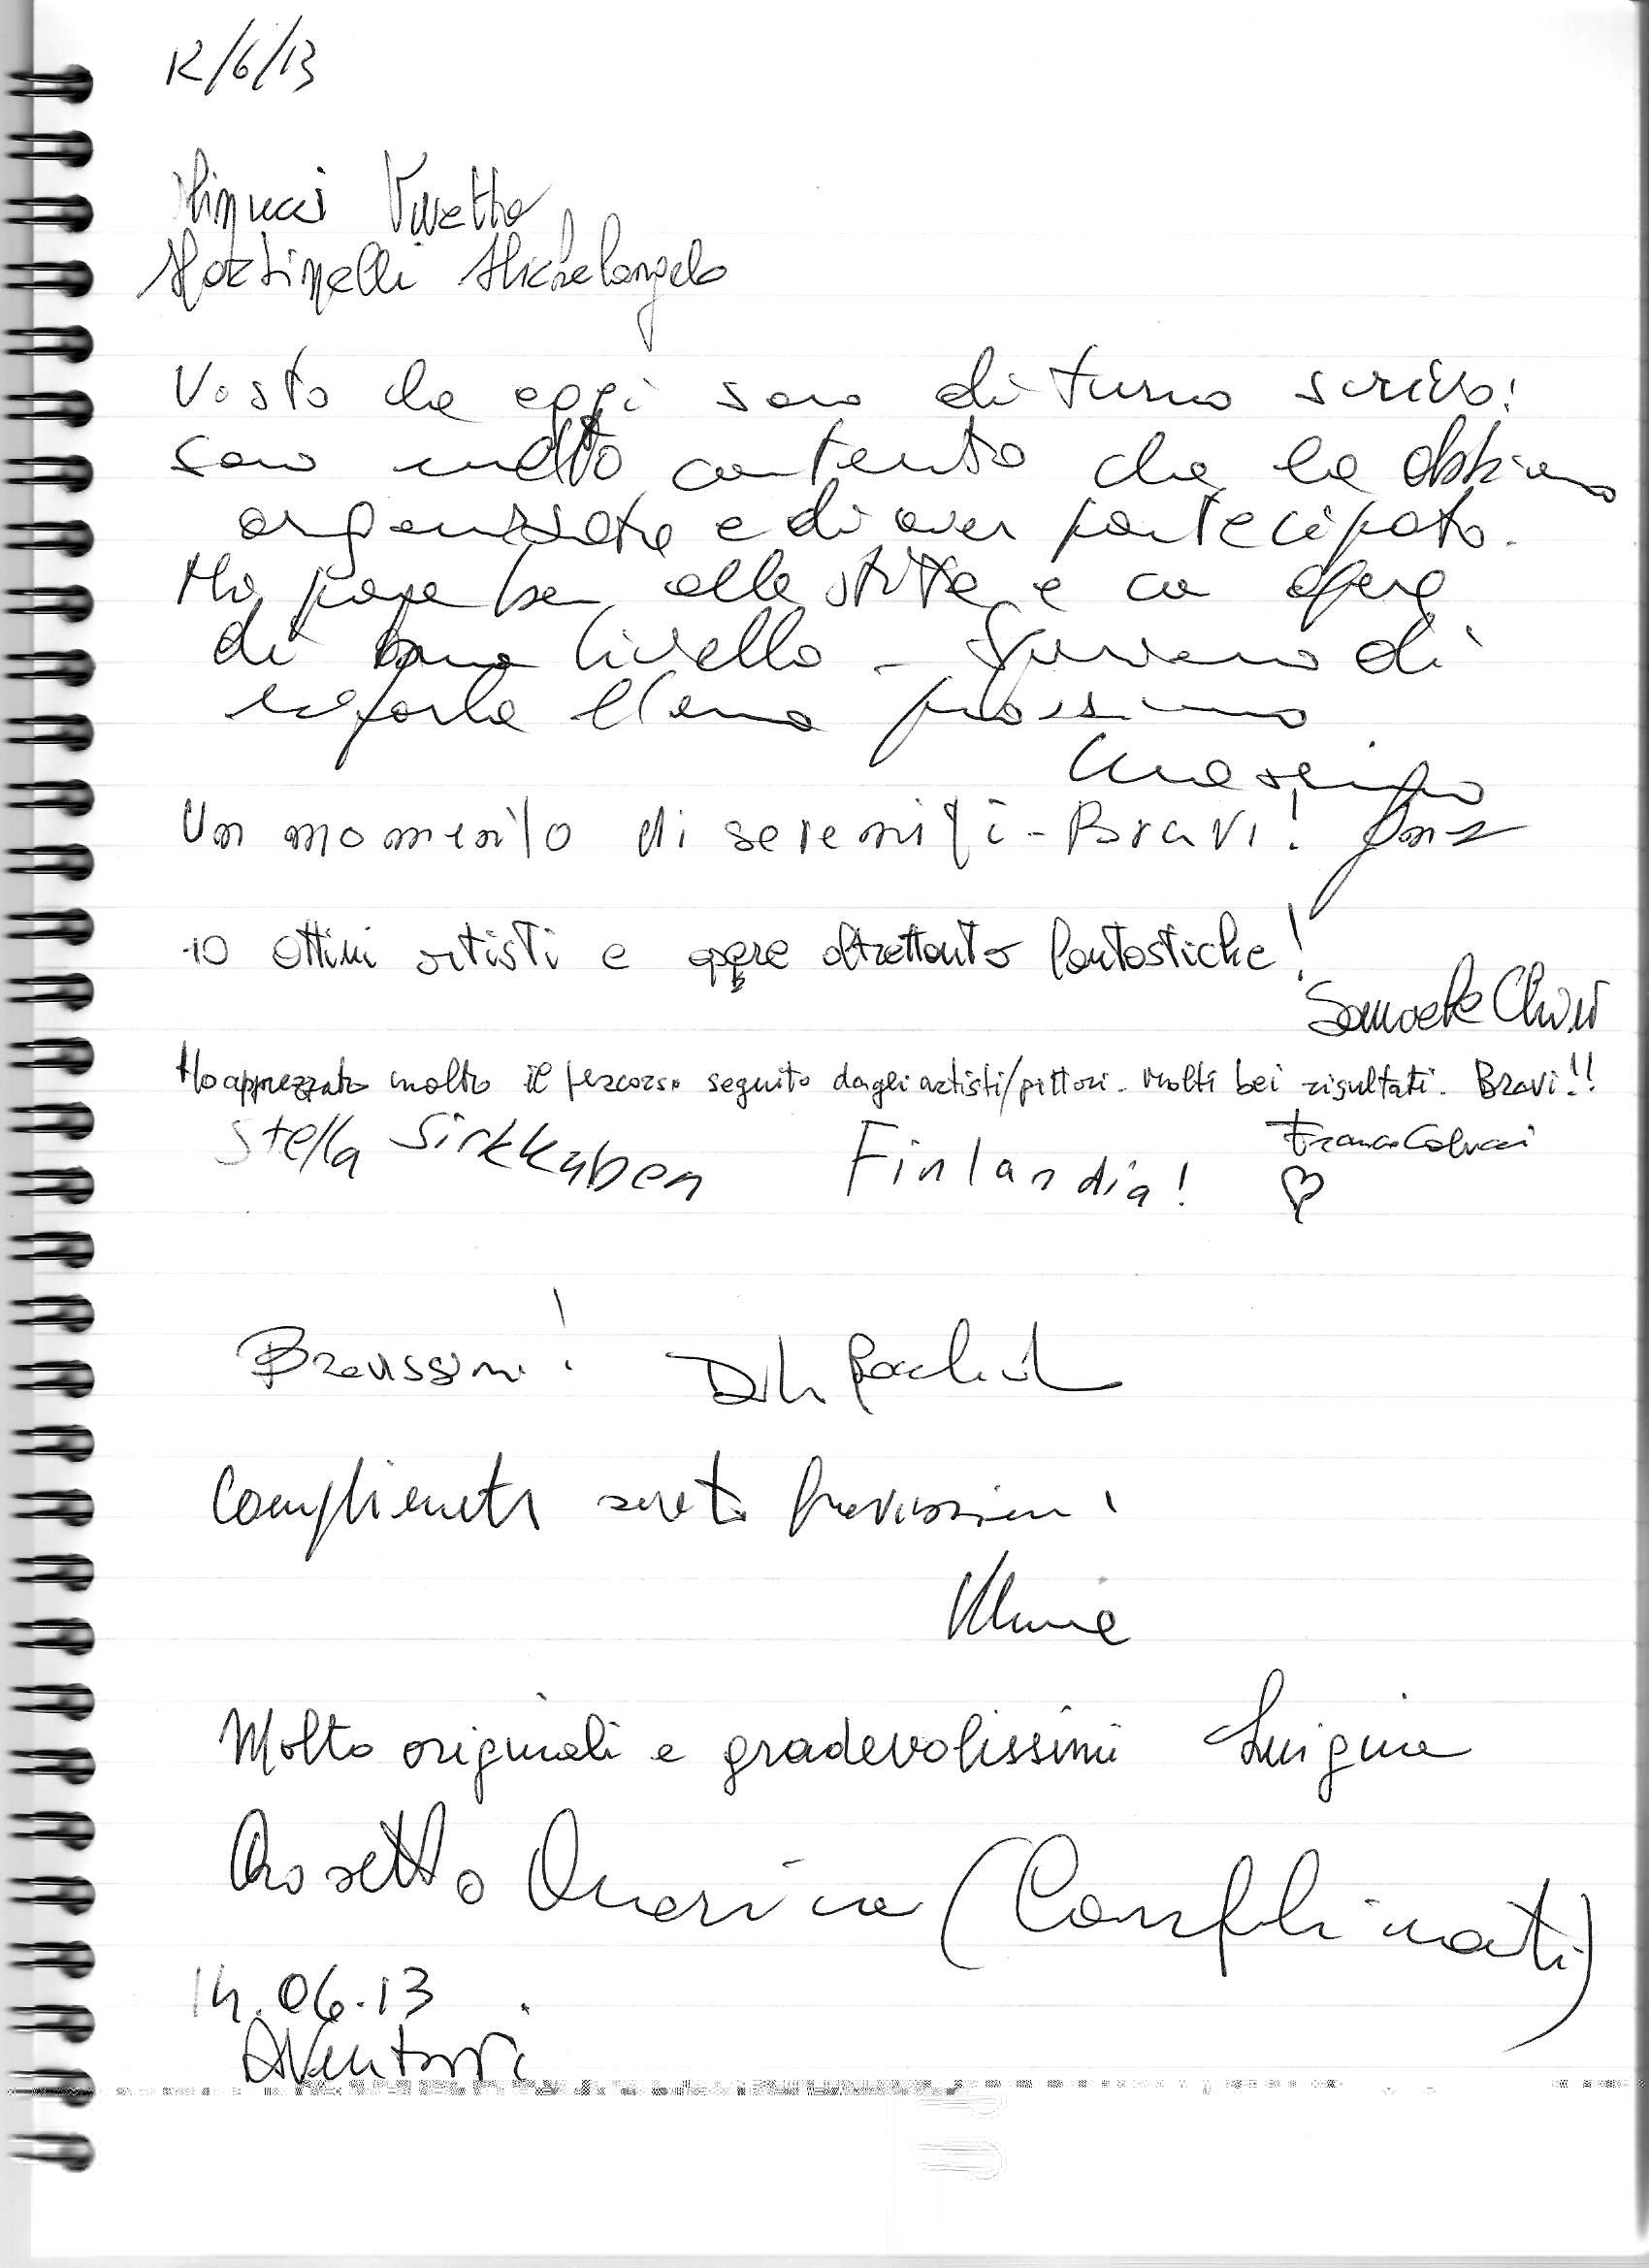 12/6/13
Minucci Vivetta
Martinelli Michelangelo
Visto che oggi sono di turno scrivo!
sono molto contento che la abbiamo
organizzata e di aver partecipato.
Mi pare ben allestita e con opere
di buon livello - Speriamo di
rifarla l'anno prossimo
Massimo
Un momento di serenità - Bravi!
10 ottimi artisti e opere altrettanto fantastiche!
Samuele
Ho apprezzato molto il percorso seguito dagli artisti/pittori. Molti bei risultati. Bravi!!
Franco Colucci
Stella Sirkkunben Finlandia!
Bravissimi!
Complimenti siete bravissimi!
Molto originali e gradevolissimi Luigina
Rosetta (Complimenti)
14.06.13
AVenturi